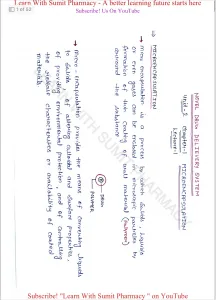 Learn With Sumit Pharmacy - A better learning future starts here
Subscribe! Us On YouTube
1 of 53
NOVEL DRUG DELIVERY SYSTEM
Unit-2 Chapter-1 MICROENCAPSULATION
Lecture-1
⇒ MICROENCAPSULATION
→ Microencapsulation is a process by which solids, liquids
or even gases can be enclosed in microscopic particles by
formation of thin coating of wall material
around the substance
DRUG
POLYMER
→ Microencapsulation provides the means of converting liquids
to solids, of altering colloidal and surface properties,
of providing environmental protection, and of controlling
the release characteristics or availability of coated
materials.
WITH SUMIT PHARMACY
Subscribe! "Learn With Sumit Pharmacy " on YouTube